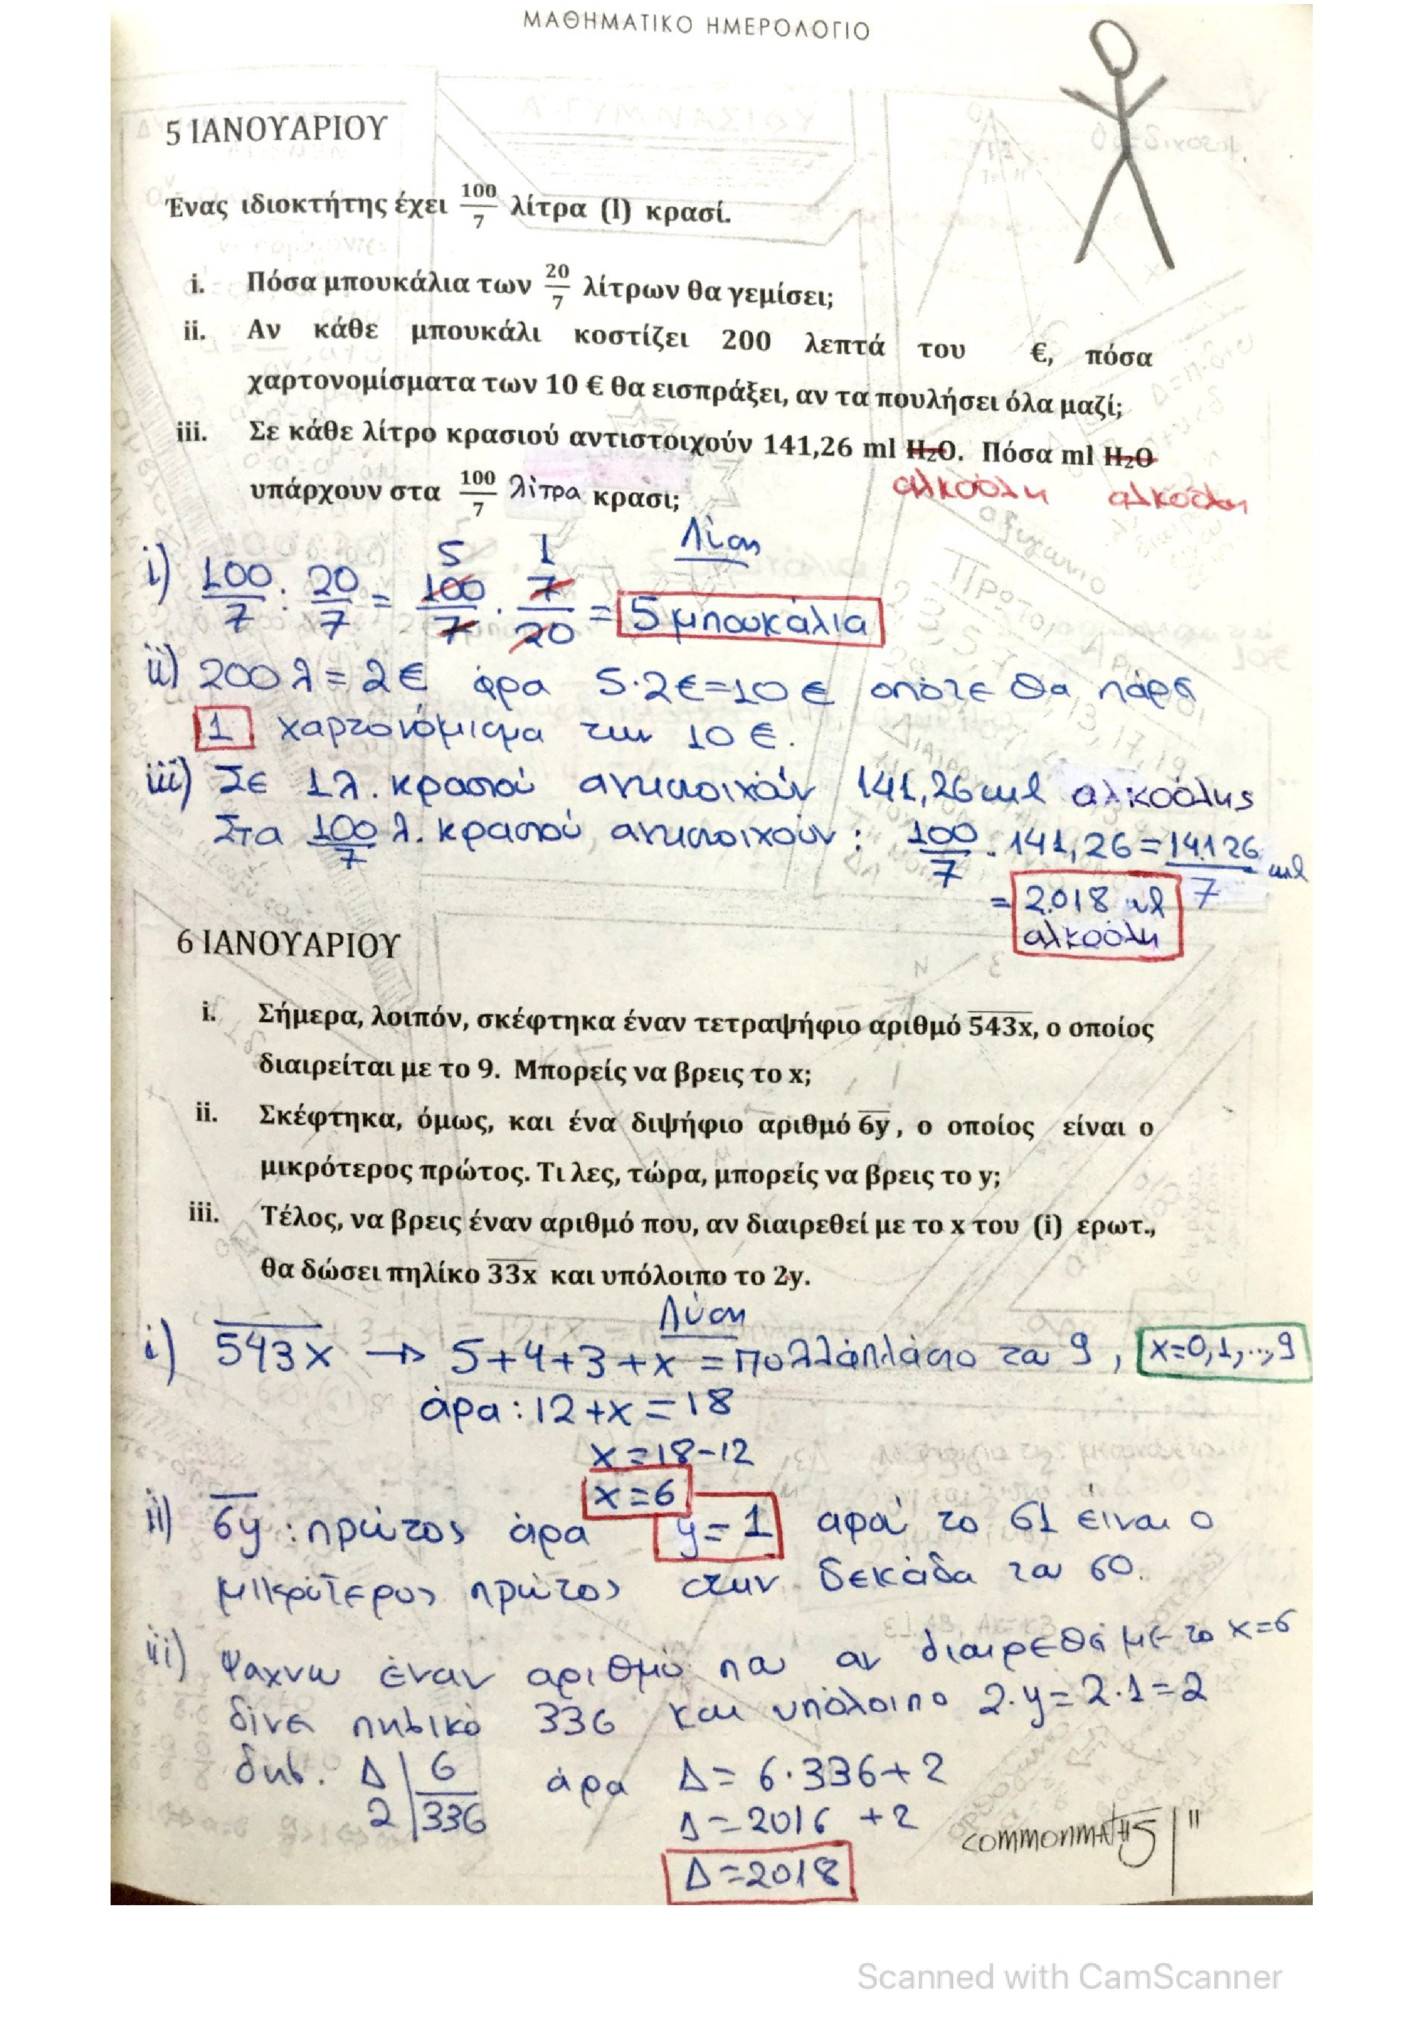 ΜΑΘΗΜΑΤΙΚΟ ΗΜΕΡΟΛΟΓΙΟ
5 ΙΑΝΟΥΑΡΙΟΥ
Ένας ιδιοκτήτης έχει 100/7 λίτρα (l) κρασί.
i. Πόσα μπουκάλια των 20/7 λίτρων θα γεμίσει;
ii. Αν κάθε μπουκάλι κοστίζει 200 λεπτά του €, πόσα
χαρτονομίσματα των 10 € θα εισπράξει, αν τα πουλήσει όλα μαζί;
iii. Σε κάθε λίτρο κρασιού αντιστοιχούν 141,26 ml H₂O. Πόσα ml H₂O
αλκοόλη αλκοόλη
υπάρχουν στα 100/7 λίτρα κρασι;
Λύση
i) 100/7 : 20/7 = 100/7 · 7/20 = 5 μπουκάλια
5 1
ii) 200 λ = 2€ άρα 5·2€=10€ οπότε θα πάρει
1 χαρτονόμισμα των 10 €.
iii) Σε 1λ. κρασιού αντιστοιχούν 141,26 ml αλκοόλης
Στα 100/7 λ. κρασιού αντιστοιχούν : 100/7 · 141,26 = 14126/7 ml
= 2.018 ml
αλκοόλη
6 ΙΑΝΟΥΑΡΙΟΥ
i. Σήμερα, λοιπόν, σκέφτηκα έναν τετραψήφιο αριθμό 543x, ο οποίος
διαιρείται με το 9. Μπορείς να βρεις το x;
ii. Σκέφτηκα, όμως, και ένα διψήφιο αριθμό 6y, ο οποίος είναι ο
μικρότερος πρώτος. Τι λες, τώρα, μπορείς να βρεις το y;
iii. Τέλος, να βρεις έναν αριθμό που, αν διαιρεθεί με το x του (i) ερωτ.,
θα δώσει πηλίκο 33x και υπόλοιπο το 2y.
Λύση
i) 543x → 5+4+3+x = πολλαπλάσιο του 9, x=0,1,..,9
άρα : 12+x=18
x=18-12
x=6
ii) 6y : πρώτος άρα y=1 αφού το 61 είναι ο
μικρότερος πρώτος στην δεκάδα του 60.
iii) Ψαχνω έναν αριθμό που αν διαιρεθεί με το x=6
δίνει πηλικό 336 και υπόλοιπο 2·y=2·1=2
δηλ. Δ 6 άρα Δ= 6·336+2
2 336 Δ=2016 +2
Δ=2018
COMMONMATHS
Scanned with CamScanner